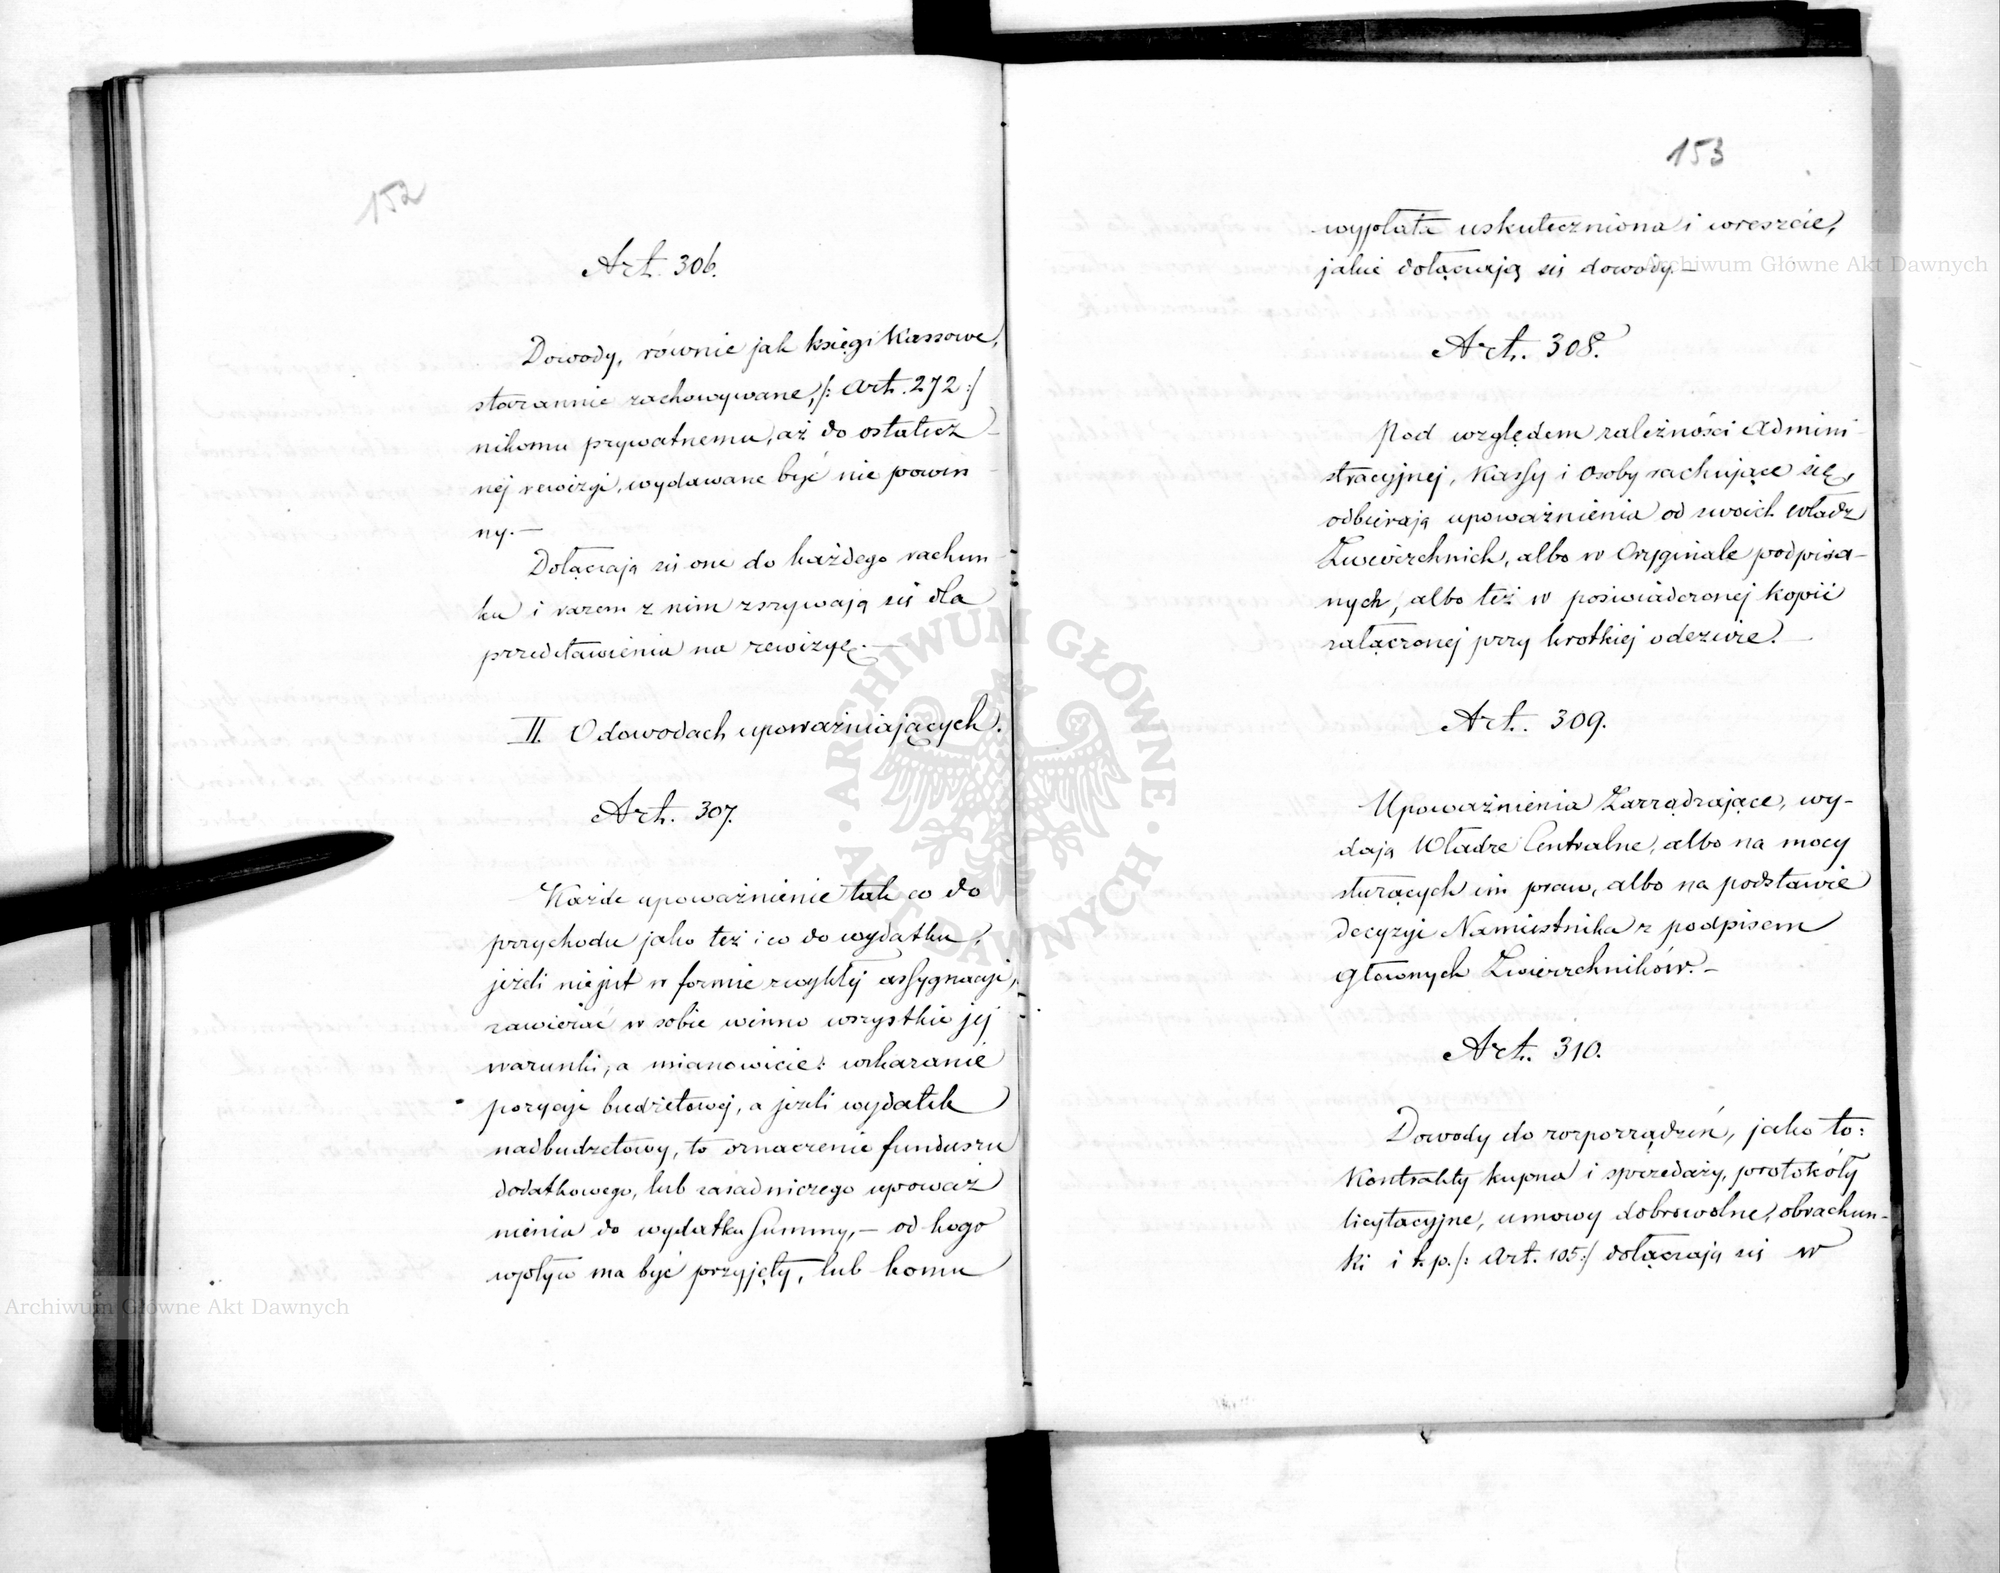 152
Art. 306.
Dowody, równie jak księgi Kassowe,
starannie zachowywane, /: Art. 272 :/
nikomu prywatnemu, aż do ostatecz
nej rewizyi, wydawane być nie powin
ny. —
Dołączają się one do każdego rachun
ku i razem z nim zszywają się dla
przedstawienia na rewizyę. —
II. O dowodach upoważniających.
Art. 307.
Każde upoważnienie tak co do
przychodu jako też i co do wydatku,
jeżeli nie jest w formie zwykłej assygnacyi,
zawierać w sobie winno wszystkie jej
warunki, a mianowicie: wskazanie
pozycyi budżetowej, a jeżeli wydatek
nadbudżetowy, to oznaczenie funduszu
dodatkowego, lub zasadniczego upoważ
nienia do wydatku Summy, — od kogo
wpływ ma być przyjęty, lub komu
153
wypłata uskuteczniona i wreszcie,
jakie dołączają się dowody. —
Art. 308.
Pod względem zależności Admini
stracyjnej, Kassy i Osoby rachujące się,
odbierają upoważnienia od swoich Władz
Zwierzchnich, albo w Oryginale podpisa-
nych, albo też w poświadczonej kopii
załączonej przy krótkiej odezwie. —
Art. 309.
Upoważnienia Zarządzające, wy-
dają Władze Centralne, albo na mocy
służących im praw, albo na podstawie
decyzyi Namiestnika z podpisem
Głównych Zwierzchników. —
Art. 310.
Dowody do rozporządzeń, jako to:
Kontrakty kupna i sprzedaży, protokóły
licytacyjne, umowy dobrowolne, obrachun-
ki i t. p. /: Art. 105 :/ dołączają się w
Archiwum Główne Akt Dawnych
Archiwum Główne Akt Dawnych
· ARCHIWUM GŁÓWNE · AKT DAWNYCH